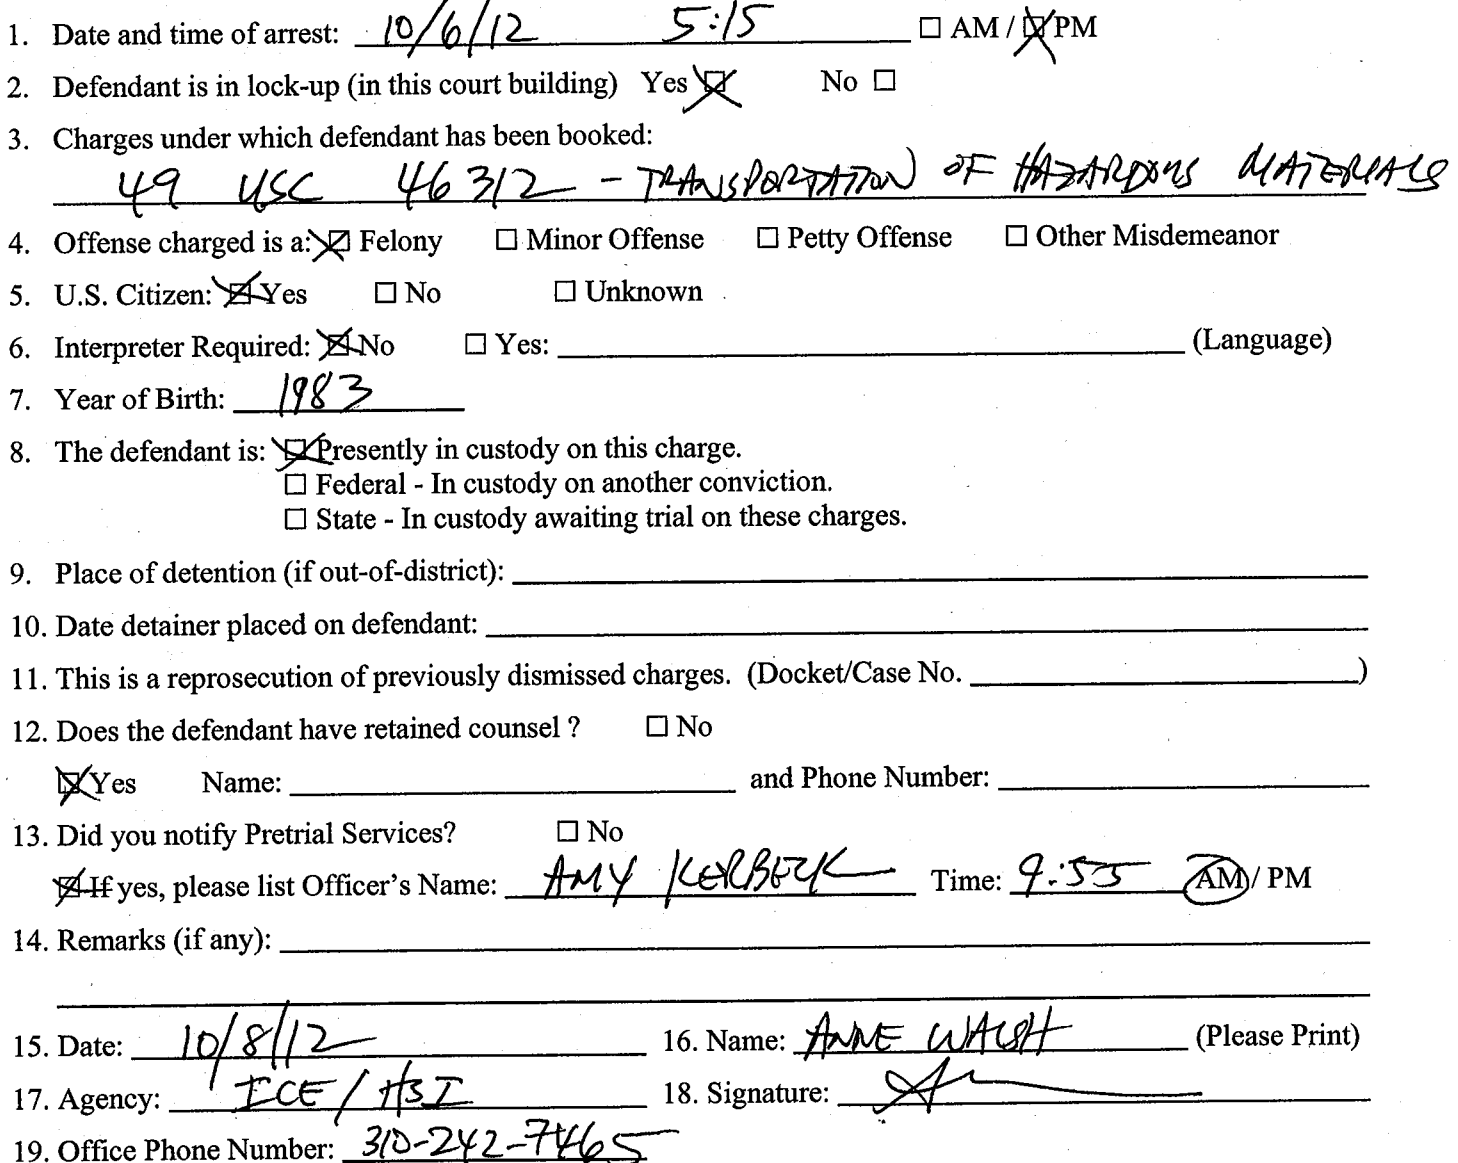 1. Date and time of arrest: 10/6/12 5:15 ☐ AM / ☒ PM
2. Defendant is in lock-up (in this court building) Yes ☒ No ☐
3. Charges under which defendant has been booked:
49 USC 46312 - TRANSPORTATION OF HAZARDOUS MATERIALS
4. Offense charged is a: ☒ Felony ☐ Minor Offense ☐ Petty Offense ☐ Other Misdemeanor
5. U.S. Citizen: ☒ Yes ☐ No ☐ Unknown
6. Interpreter Required: ☒ No ☐ Yes: (Language)
7. Year of Birth: 1983
8. The defendant is: ☒ Presently in custody on this charge.
☐ Federal - In custody on another conviction.
☐ State - In custody awaiting trial on these charges.
9. Place of detention (if out-of-district):
10. Date detainer placed on defendant:
11. This is a reprosecution of previously dismissed charges. (Docket/Case No. )
12. Does the defendant have retained counsel ? ☐ No
☒ Yes Name: and Phone Number:
13. Did you notify Pretrial Services? ☐ No
☒ If yes, please list Officer's Name: AMY KERBECK Time: 9:55 AM / PM
14. Remarks (if any):
15. Date: 10/8/12 16. Name: ANNE WALSH (Please Print)
17. Agency: ICE / HSI 18. Signature:
19. Office Phone Number: 310-242-7465